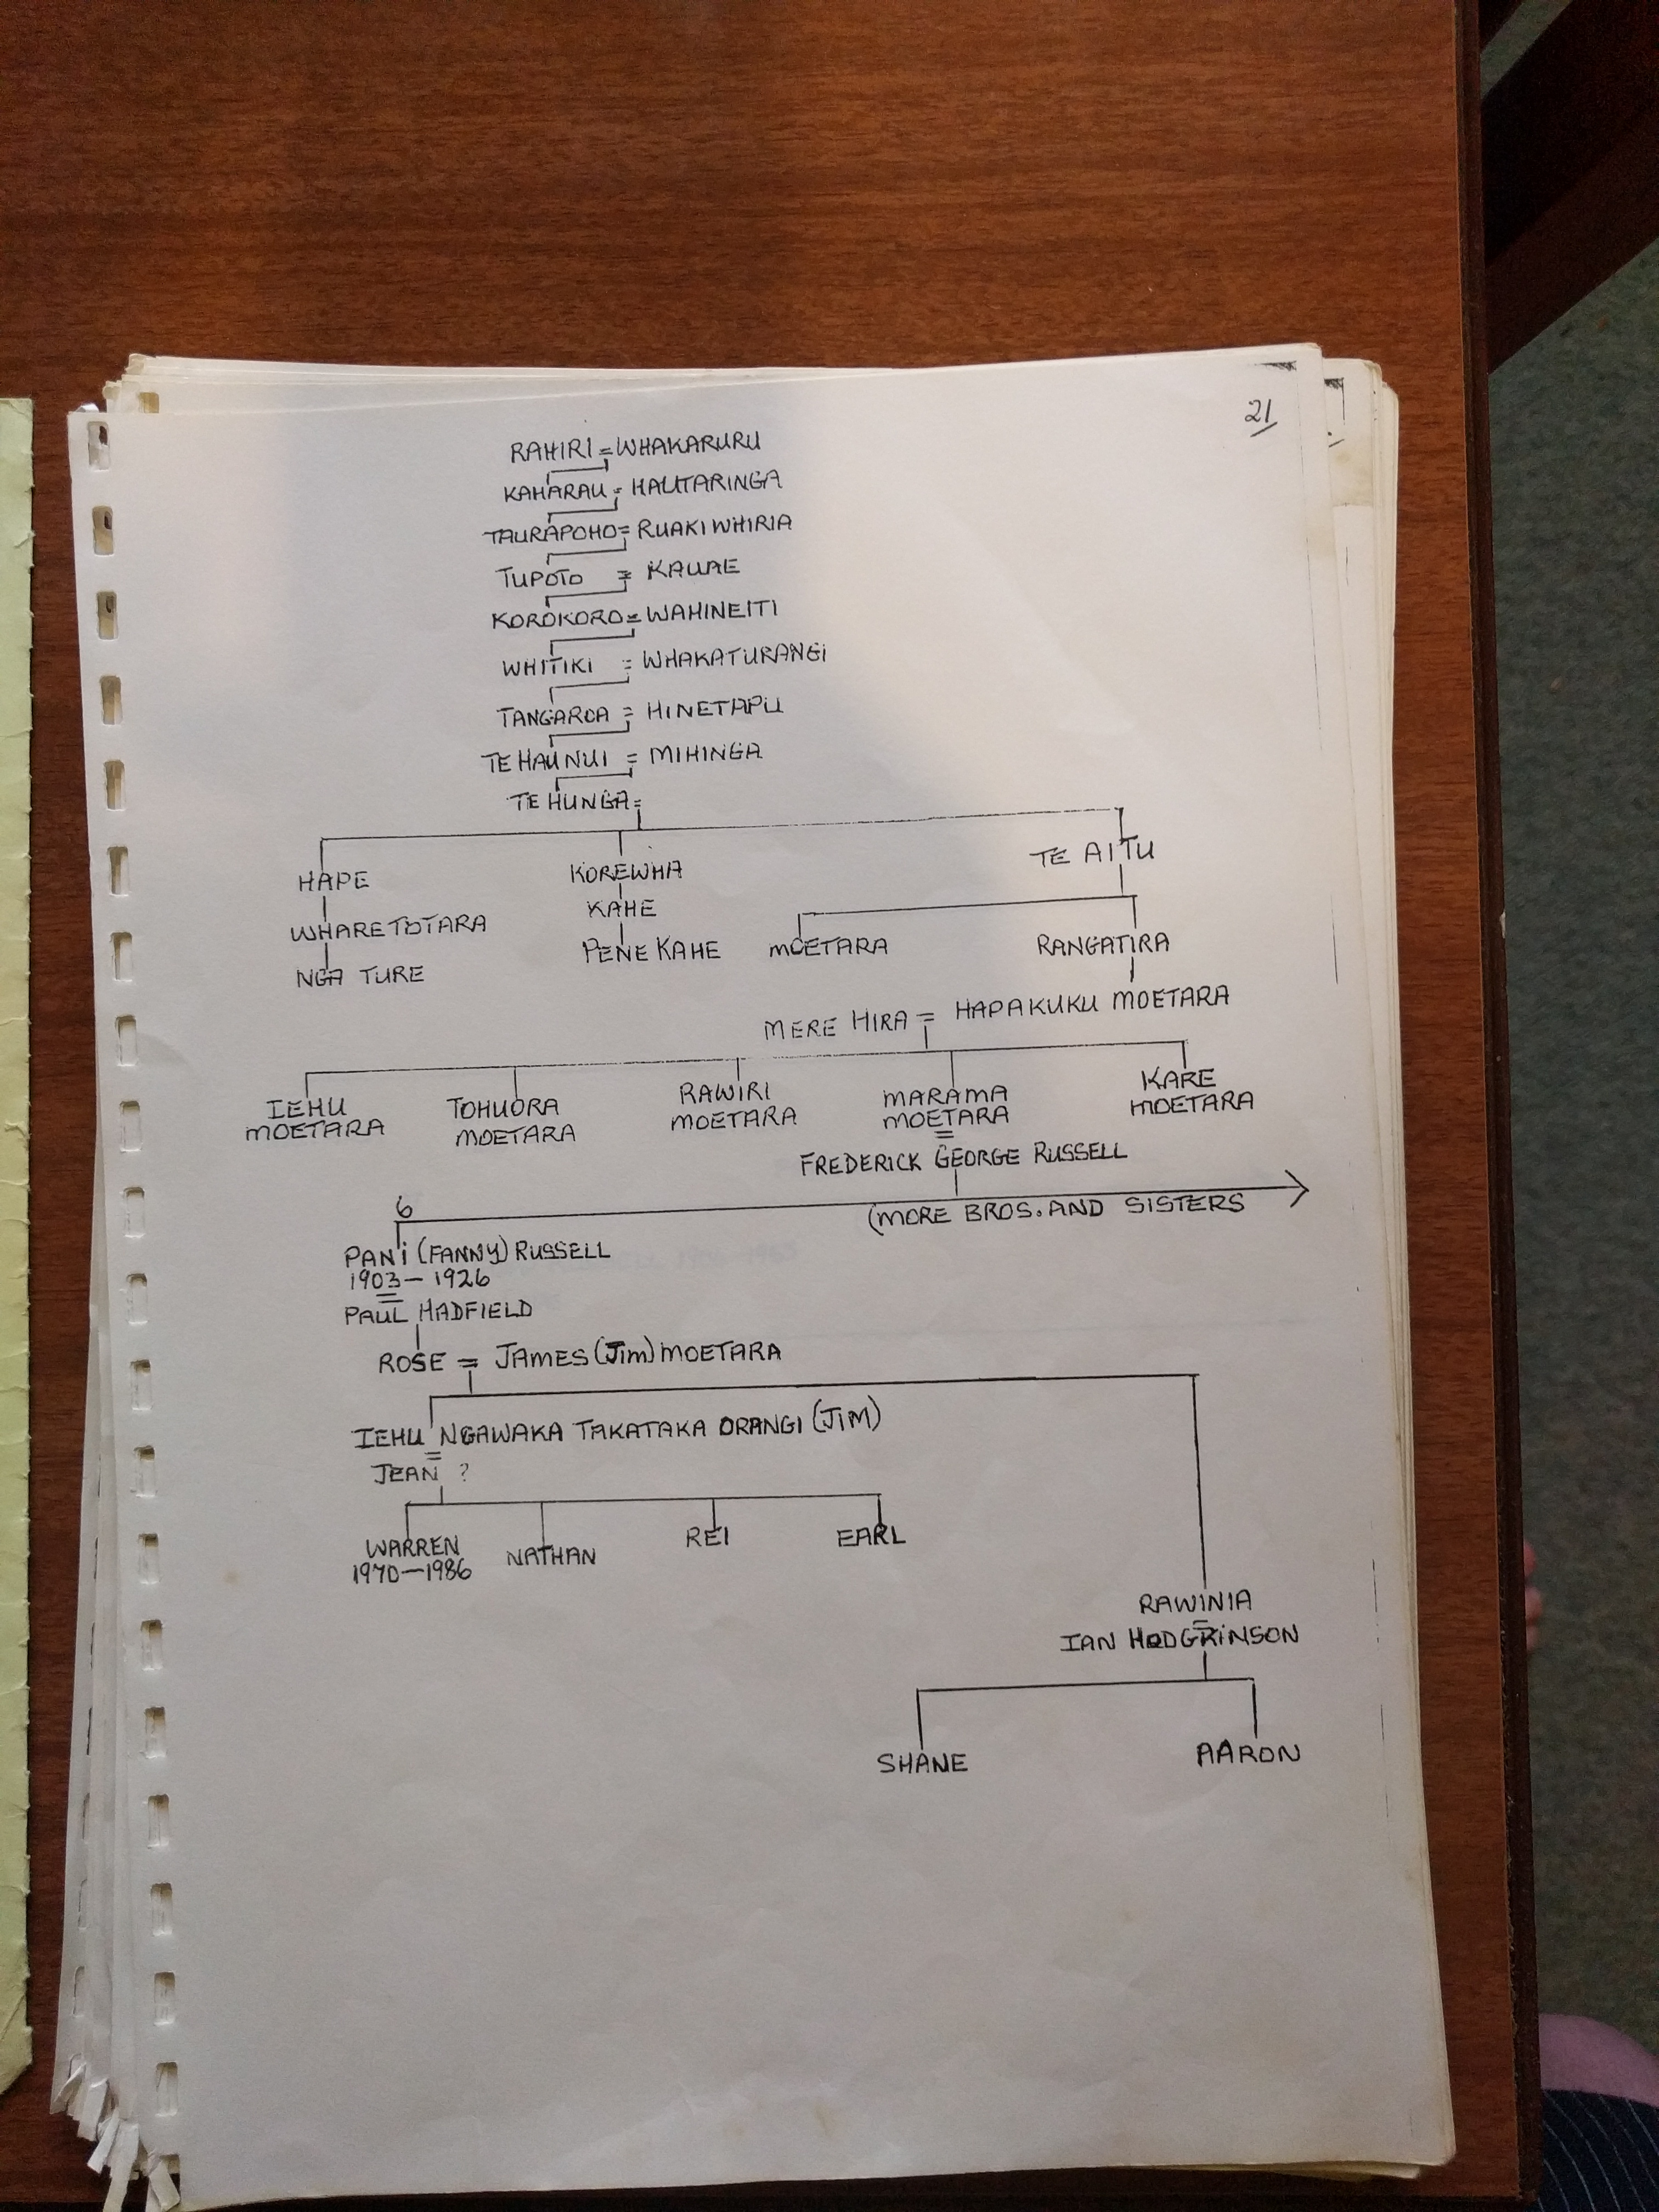 21
RAHIRI = WHAKARURU
KAHARAU = HAUTARINGA
TAURAPOHO = RUAKIWHIRIA
TUPOTO = KAUAE
KOROKORO = WAHINEITI
WHITIKI = WHAKATURANGI
TANGAROA = HINETAPU
TE HAUNUI = MIHINGA
TE HUNGA =
HAPE KOREWHA TE AITU
WHARETOTARA KAHE
NGA TURE PENE KAHE MOETARA RANGATIRA
MERE HIRA = HAPAKUKU MOETARA
IEHU TOHUORA RAWIRI MARAMA KARE
MOETARA MOETARA MOETARA MOETARA MOETARA
=
FREDERICK GEORGE RUSSELL
6
(MORE BROS. AND SISTERS
PANI (FANNY) RUSSELL
1903 - 1926
=
PAUL HADFIELD
ROSE = JAMES (Jim) MOETARA
IEHU NGAWAKA TAKATAKA ORANGI (JIM)
=
JEAN ?
WARREN NATHAN REI EARL
1970 - 1986
RAWINIA
=
IAN HODGKINSON
SHANE AARON